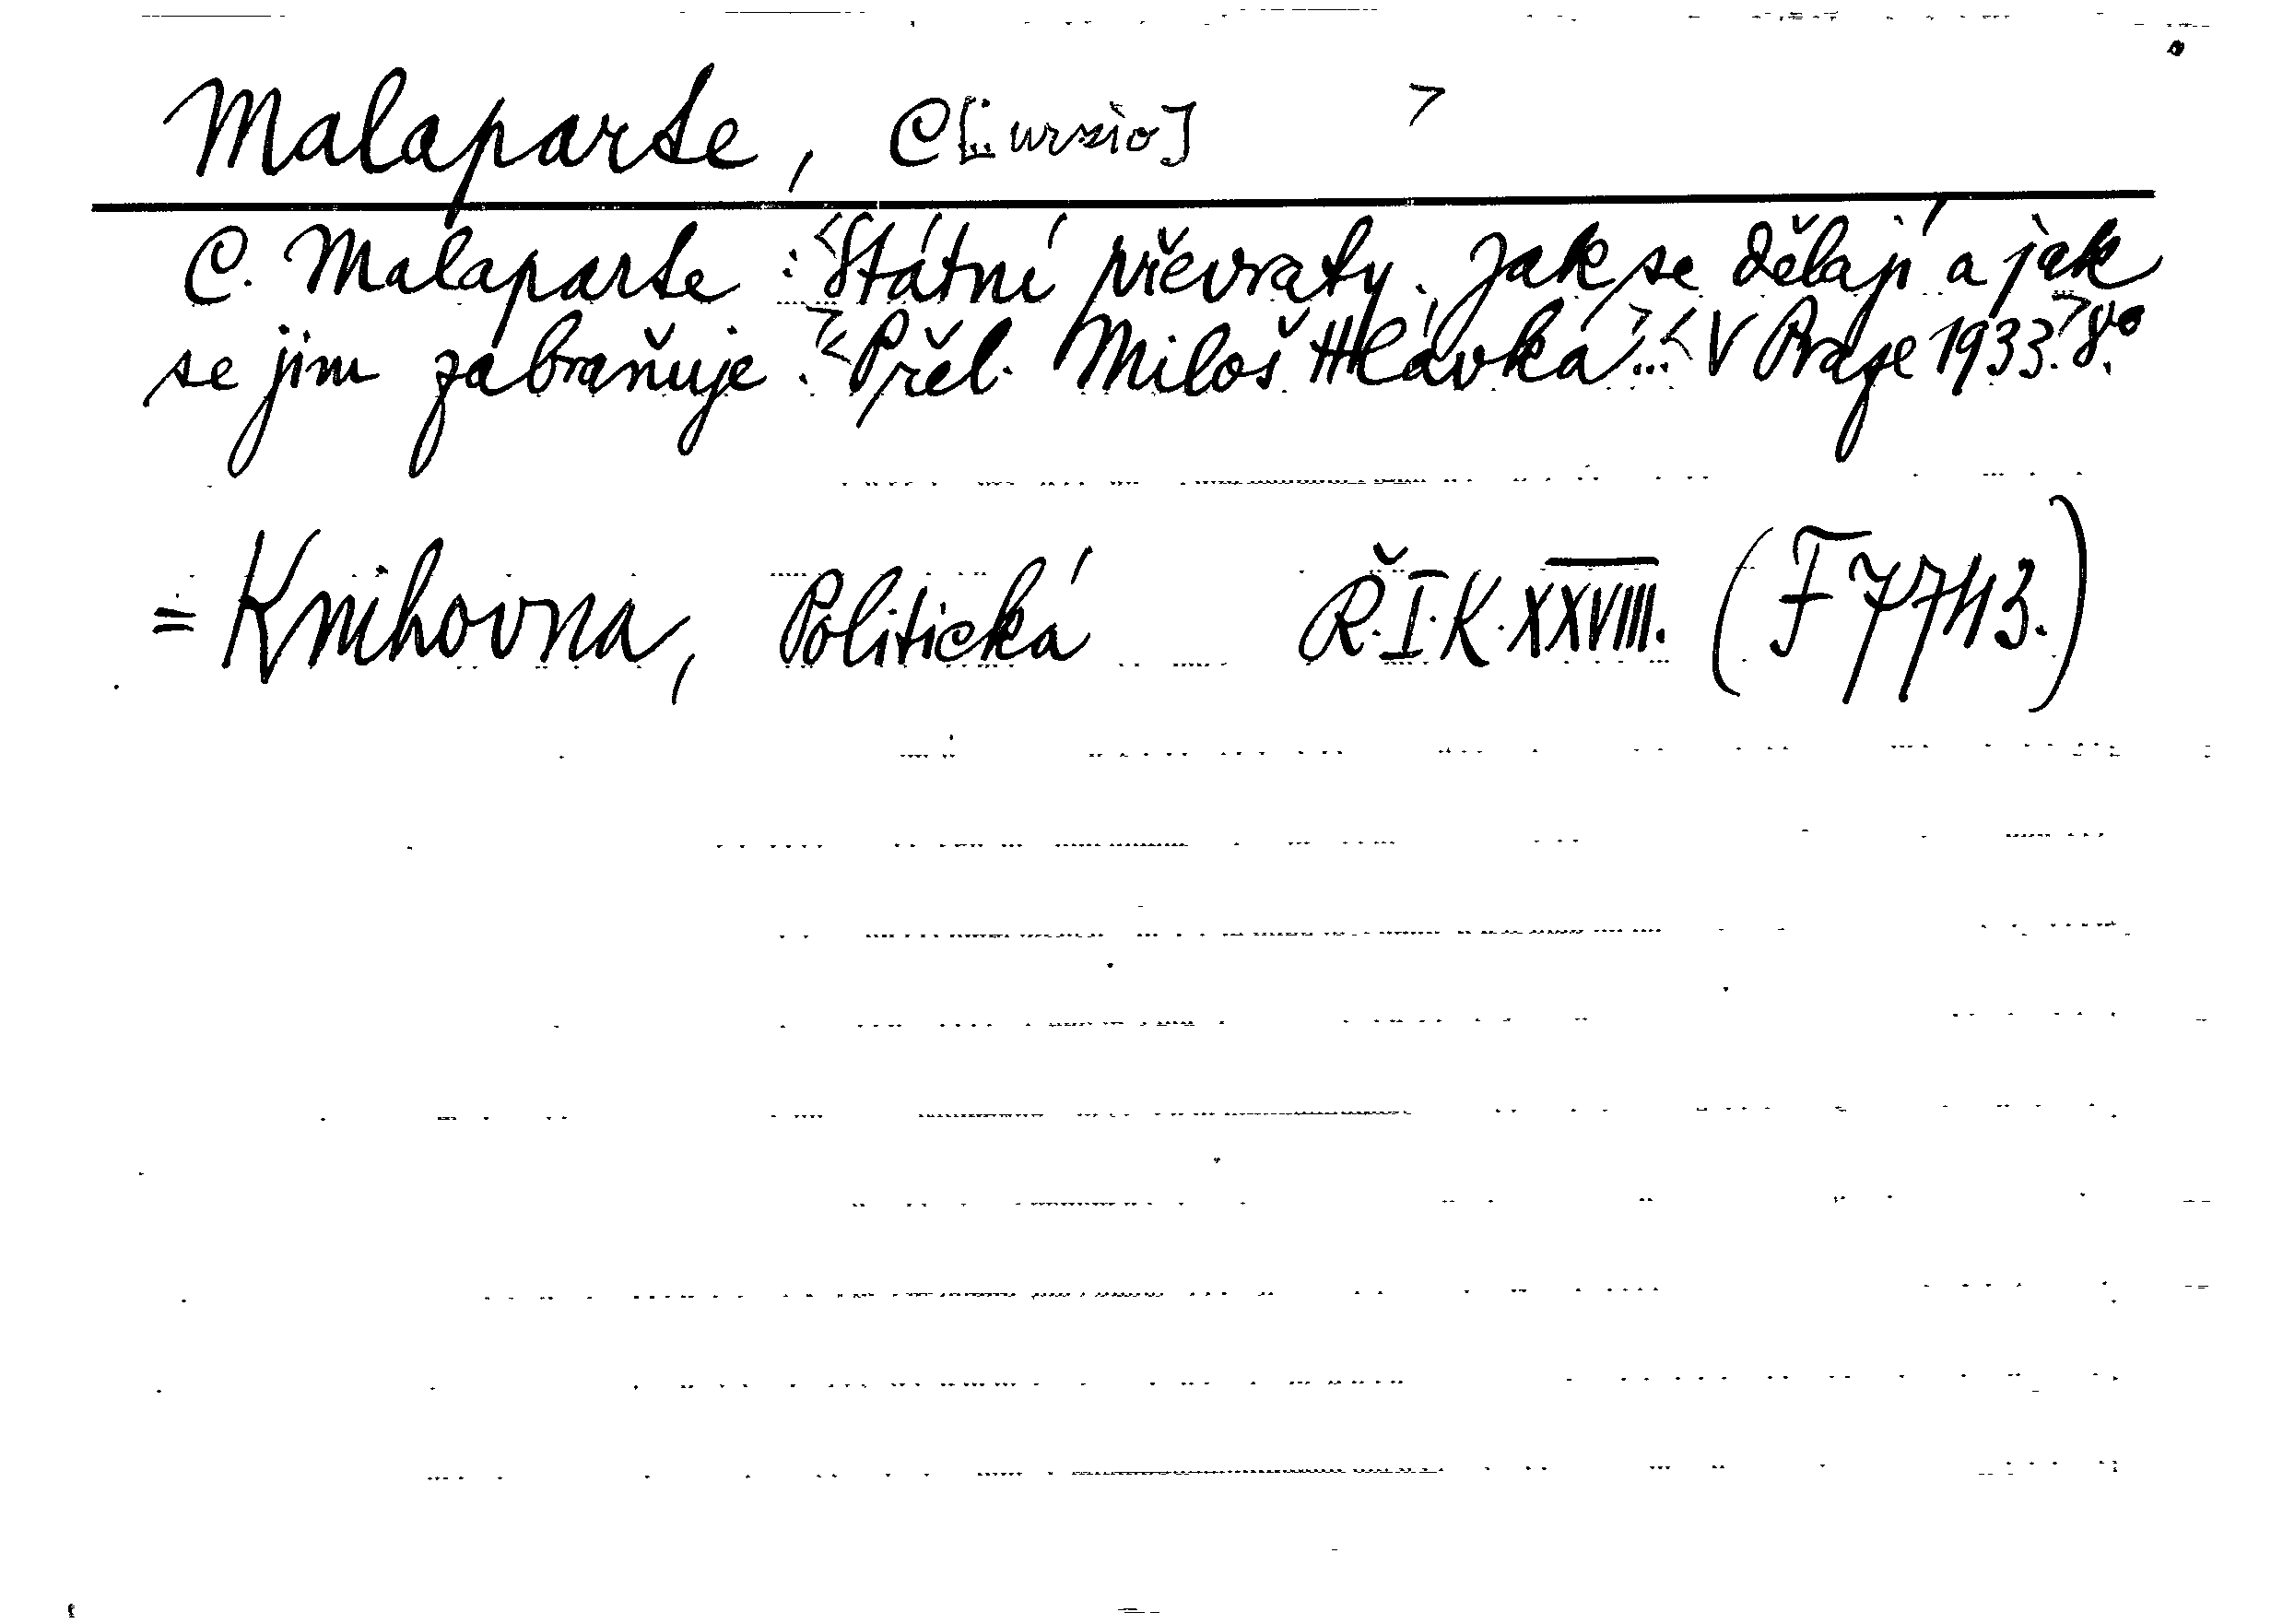 Malaparte, C[..urzio] >
C. Malaparte : <Státní převraty. Jak se dělají a jak
se jim zabraňuje.> <Přel. Miloš Hlávka>... <V Praze 1933.> 8°.
= Knihovna, Politická Ř.I.K.XXVIII. (F 7743.)